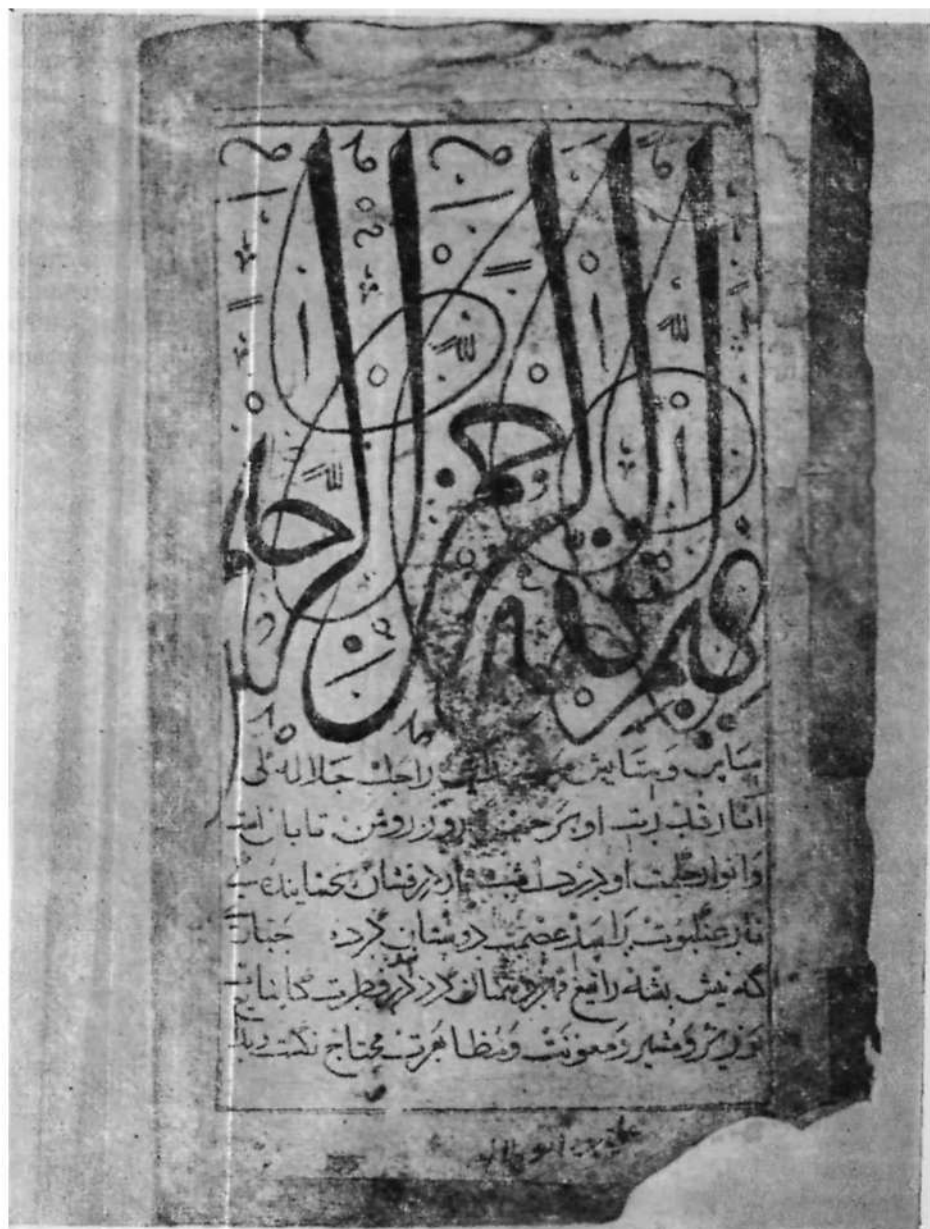 بسم الله الرحمن الرحیم
سپاس و ستایش مر خدای را جل جلاله کی
آثار قدرت او بر چهره روز روشن تابان است
و انوار حکمت او در دل شب تار درفشان بخشاینده
تار عنکبوت را سد عصمت دوستان کرد جبار
که نیش پشه را تیغ قهر دشمنان کرد در فطرت کاینات
بوزیر و مشیر و معونت و مظاهرت محتاج نکشت